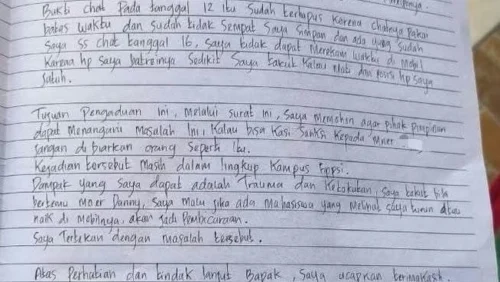 Bukti chat Pada tanggal 12 itu sudah terhapus Karena chatnya Pakai
batas waktu dan sudah tidak sempat saya simpan dan ada yang sudah
saya ss chat tanggal 16, saya tidak dapat merekam waktu di mobil
Karena hp saya batreinya sedikit saya takut Kalau mati dan posisi hp saya
jatuh.
Tujuan Pengaduan ini, melalui surat ini, saya memohon agar pihak pimpinan
dapat Menangani Masalah Ini, Kalau bisa Kasi Sanksi Kepada Mner
Jangan di biarkan orang Seperti Itu.
Kejadian tersebut Masih dalam lingkup Kampus
Dampak yang Saya dapat adalah Trauma dan Ketakutan, saya takut bila
bertemu Mner Danny, Saya Malu jika ada Mahasiswa yang Melihat saya turun atau
naik di Mobilnya, akan jadi Pembicaraan.
Saya Tertekan dengan masalah tersebut.
Atas Perhatian dan tindak lanjut Bapak, saya ucapkan terimakasih.